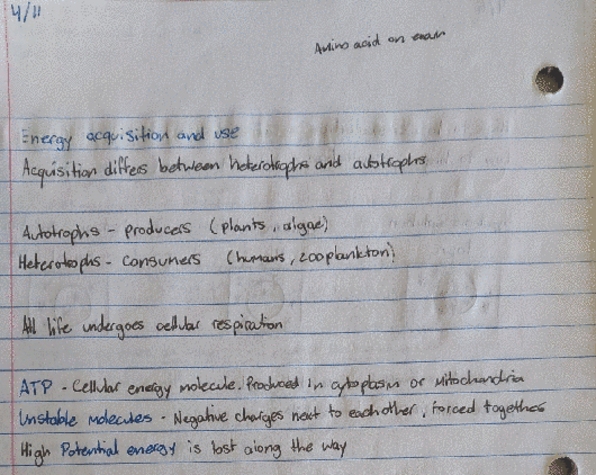 4/11
Amino acid on exam
Energy acquisition and use
Acquisition differs between heterotrophs and autotrophs
Autotrophs - producers (plants, algae)
Heterotrophs - consumers (humans, zooplankton)
All life undergoes cellular respiration
ATP - Cellular energy molecule. Produced in cytoplasm or Mitochondria
Unstable molecules - Negative charges next to eachother, forced together
High Potential energy is lost along the way